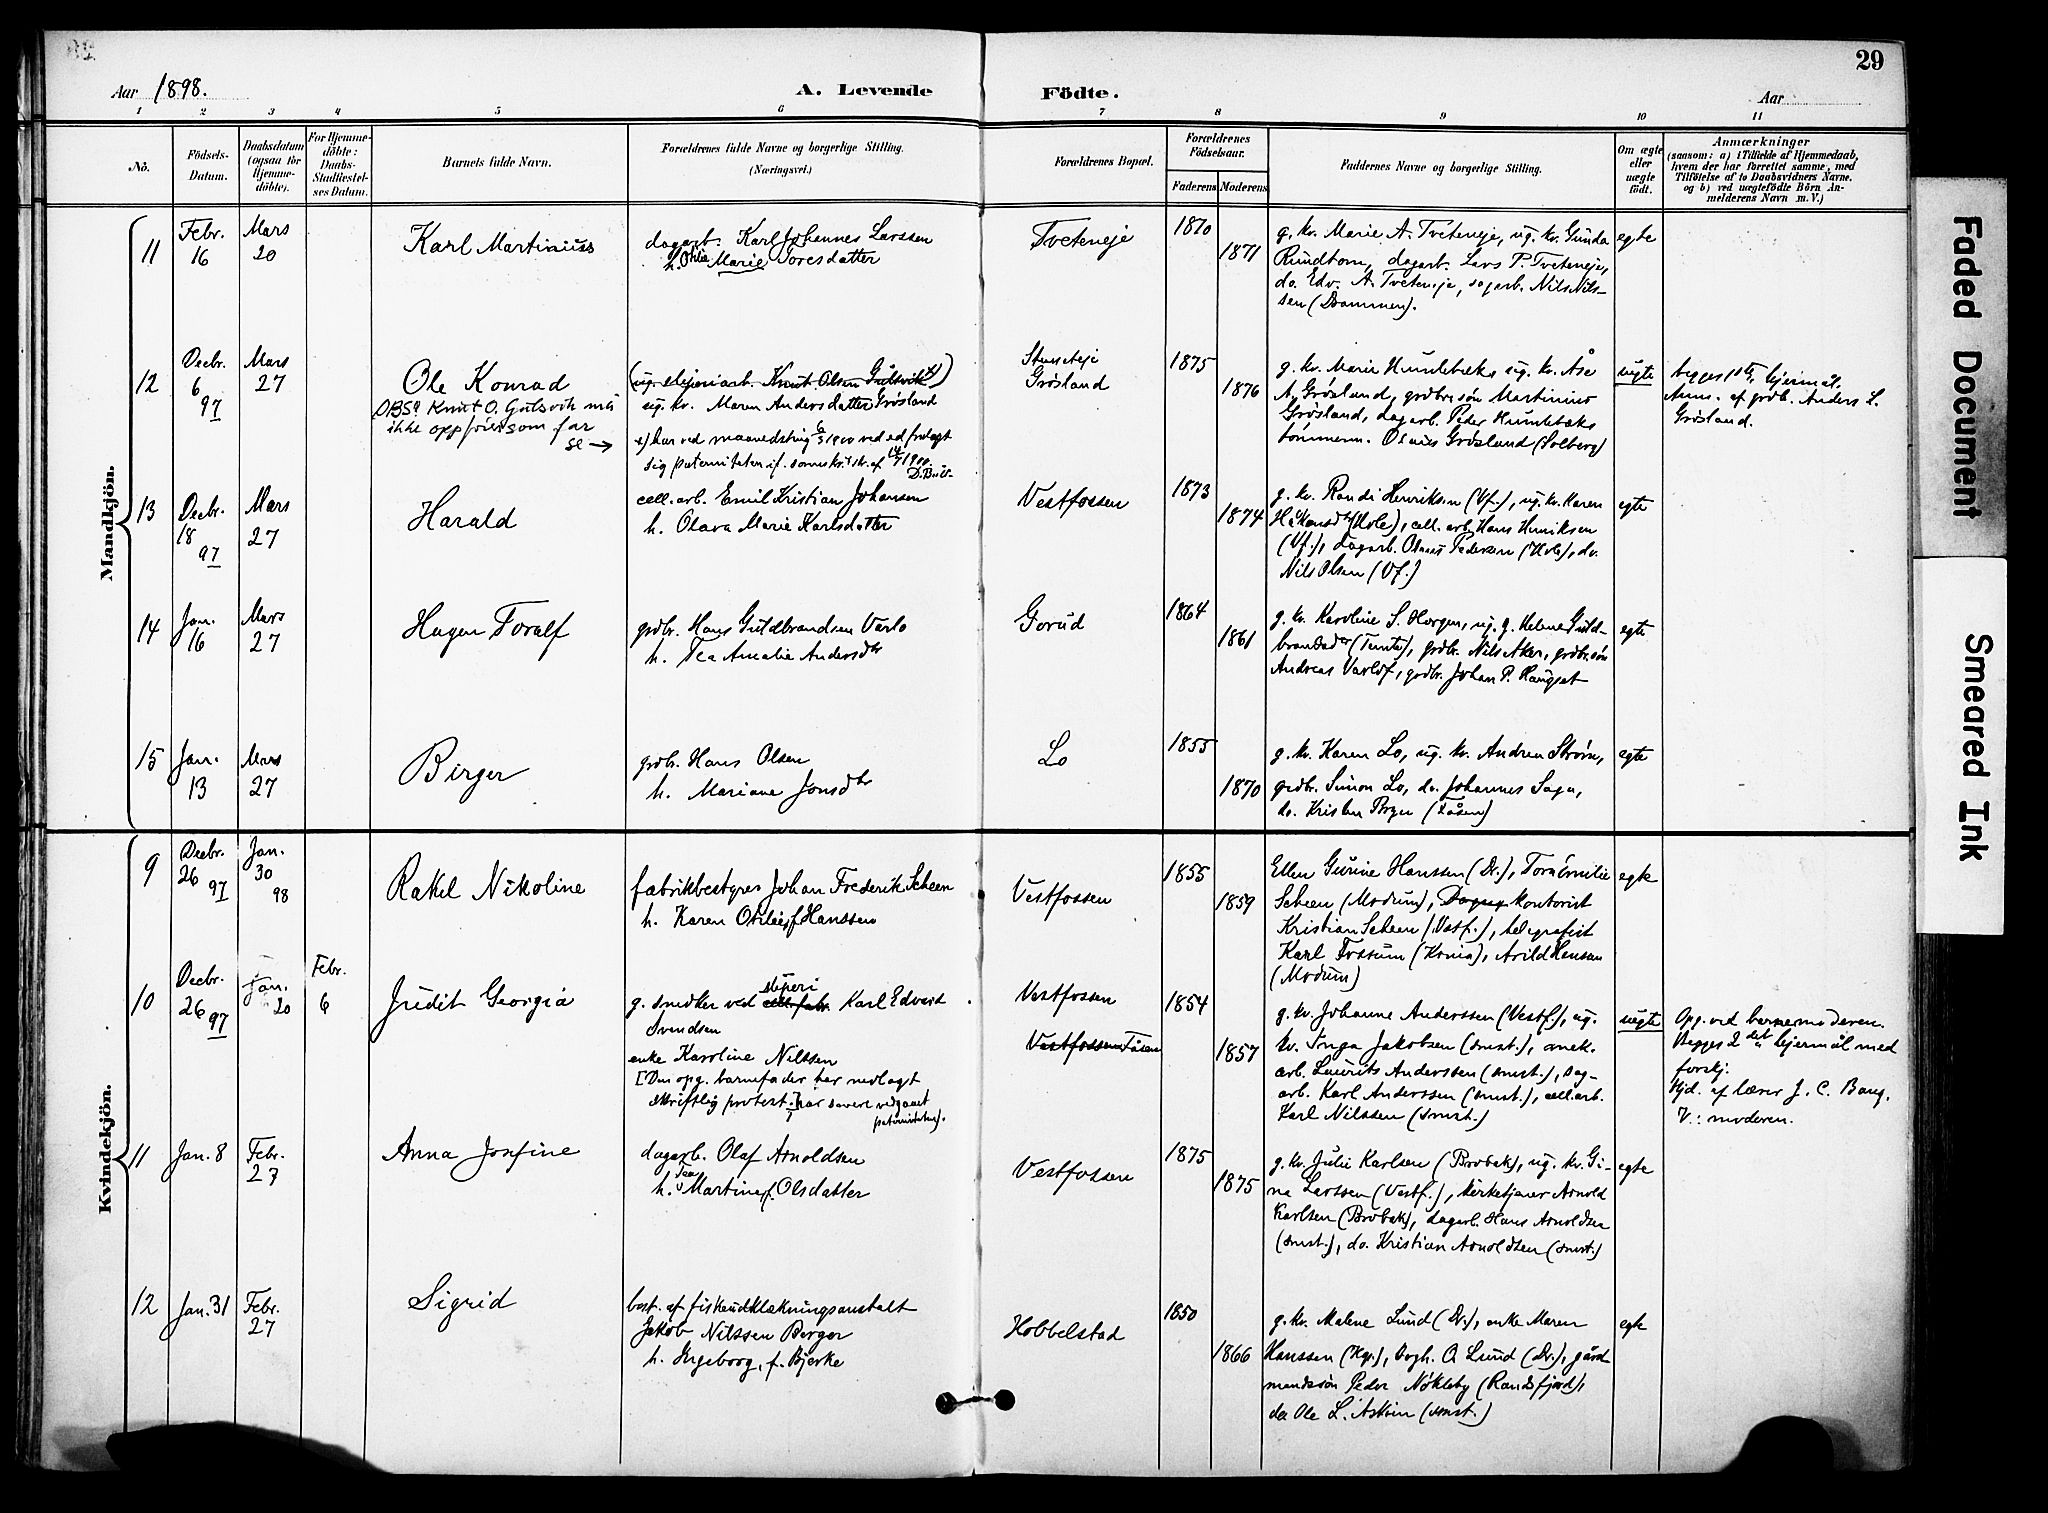 29
Aar 1898.
A. Levende
Födte.
Aar
1 2 3 4 5 6 7 8 9 10 11
No.
Födsels-
Datum.
Daabsdatum
(ogsaa for
Hjemme-
döbte).
For Hjemme-
döbte:
Daabs-
Stadfæstel-
ses Datum.
Barnets fulde Navn.
Forældrenes fulde Navne og borgerlige Stilling.
(Næringsvei.)
Forældrenes Bopæl.
Forældrenes
Födselsaar.
Faderens
Moderens
Faddernes Navne og borgerlige Stilling.
Om ægte
eller
uægte
födt.
Anmærkninger
(saasom: a) i Tilfælde af Hjemmedaab,
hvem der har forrettet samme, med
Tilföielse af to Daabsvidners Navne.
og b) ved uægtefödte Börn An-
melderens Navn m. V.)
Mandkjön.
11
Febr.
16
Mars
20
Karl Martinius
dagarb. Karl Johannes Larssen
h. Otilie Marie Toresdatter
Tveteneje
1870
1871
g. kv. Marie A. Tveteneje, ug. kv. Gunda
Rundtom, dagarb. Lars P. Tveteneje,
do. Edv. A. Tveteneje, sagarb. Nils Nils-
sen (Drammen).
egte
12
Decbr.
6
97
Mars
27
Ole Konrad
OBS! Knut O. Gulsvik må
ikke oppföies som far
se →
(ug. sliperiarb. Knut Olsen Gulsvik x)
ug. kv. Maren Andersdatter Grøsland
x) har ved maanedsting 6/3 1900 ved ed fralagt
sig paterniteten
Grøsland
1875
1876
g. kv. Marie Humlebæks ug. kv. Åse
A. Grøsland, grdbr.søn Martinius
Grøsland, dagarb. Peder Humlebæks
tömmerm. Olaus Grøsland (Solberg)
uegte
begges 1ste lejermål.
Anm. af grdb. Anders L.
Grøsland.
13
Decbr.
18
97
Mars
27
Harald
cell.arb. Emil Kristian Johansen
h. Olava Marie Karlsdatter
Vestfossen
1873
1874
g. kv. Randi Henriksen (Vf.), ug. kv. Karen
Håkonsdtr (Hole), cell. arb. Hans Henriksen
(Vf.), dagarb. Olaus Pedersen (Hole), do.
Nils Olsen (Vf.)
egte
14
Jan.
16
Mars
27
Hagen Toralf
grdbr. Hans Guldbrandsen Varlo
h. Tea Amalie Andersdtr
Gorud
1864
1861
g. kv. Karoline S. Horgen, ug. g. Helene Guld-
brandsdtr (Temte), grdbr. Nils Aker, grdbr.søn
Andreas Varlo, grdbr. Johan P. Haugset
egte
15
Jan.
13
Mars
27
Birger
grdbr. Hans Olsen
h. Mariane Jonsdtr
Lo
1855
1870
g. kv. Karen Lo, ug. kv. Andrea Strøm,
grdbr. Simon Lo, do. Johannes Saga,
do. Kristen Bryn (Fåsen)
egte
Kvindekjön.
9
Decbr.
26
97
Jan.
30
98
Rakel Nikoline
fabrikbestyrer Johan Frederik Scheen
h. Karen Otilie, f. Hanssen
Vestfossen
1855
1859
Ellen Gurine Hanssen (Dr.), Tora Emilie
Scheen (Modum), kontorist
Kristian Scheen (Vestf.), telegrafist
Karl Fossum (Kria), Arild Hansen
(Modum)
egte
10
Decbr.
26
97
Jan.
20
Febr.
6
Judit Georgia
g. snedker ved sliperi cell.fabr. Karl Edvard
Svendsen
enke Karoline Nilssen
[Den opg. barnefader har nedlagt
skriftlig protest. har senere vedgaaet
paterniteten).
Vestfossen
Vestfossen Fåsen
1854
1857
g. kv. Johanne Anderssen (Vestf.), ug.
kv. Inga Jakobsen (smst.), snek.
arb. Laurits Anderssen (smst.), sag-
arb. Karl Anderssen (smst.), cell.arb.
Karl Nilssen (smst.)
uegte
Opg. ved barnemoderen.
Begges 2det lejermål med
forskj.
Hjd. af lærer J. C. Bang.
V.: moderen.
11
Jan. 8
Febr.
27
Anna Josefine
dagarb. Olaf Arnoldsen
h. Tea Martine, f. Olsdatter
Vestfossen
1875
1875
g. kv. Julie Karlsen (Brobak), ug. kv. Gi-
na Larssen (Vestf.), kirketjener Arnold
Karlsen (Brobak), dagarb. Hans Arnoldsen
(smst.), do. Kristian Arnoldsen (smst.)
egte
12
Jan. 31
Febr.
27
Sigrid
best. af fiskeudklækningsanstalt
Jakob Nilssen Berger
h. Ingeborg, f. Bjerke
Hobbelstad
1850
1866
g. kv. Malene Lund (Dr.), enke Maren
Hanssen (Kgs.), bogh. O. Lund (Dr.), gård
mandssøn Peder Nökleby (Randsfjord),
do Ole L. Askim (smst.)
egte
Faded Document
Smeared Ink